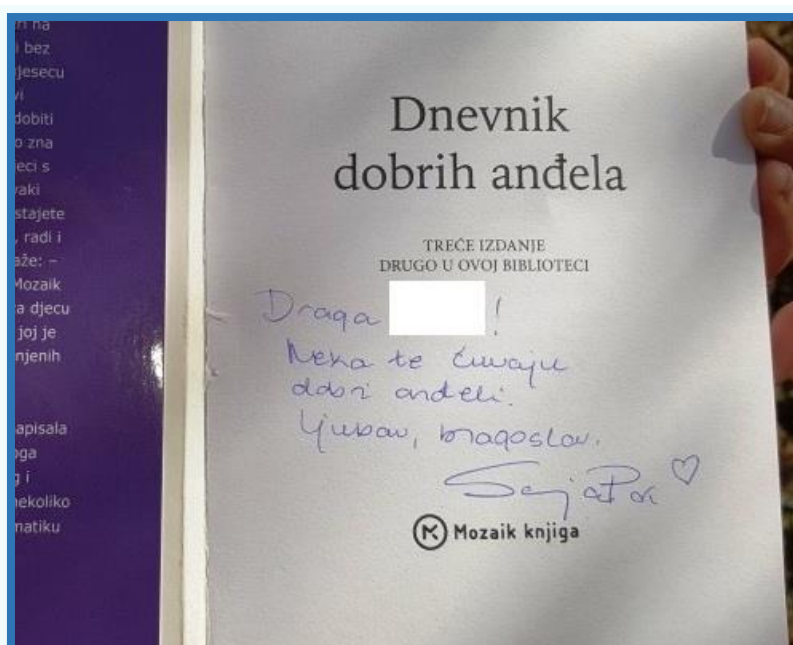 ri na
i bez
jesecu
vi
dobiti
o zna
eci s
vaki
stajete
, radi i
aže: –
Mozaik
a djecu
joj je
njenih
apisala
oga
g i
nekoliko
matiku
Dnevnik
dobrih anđela
TREĆE IZDANJE
DRUGO U OVOJ BIBLIOTECI
Draga !
Neka te čuvaju
dobri anđeli.
Ljubav, blagoslov.
Mozaik knjiga